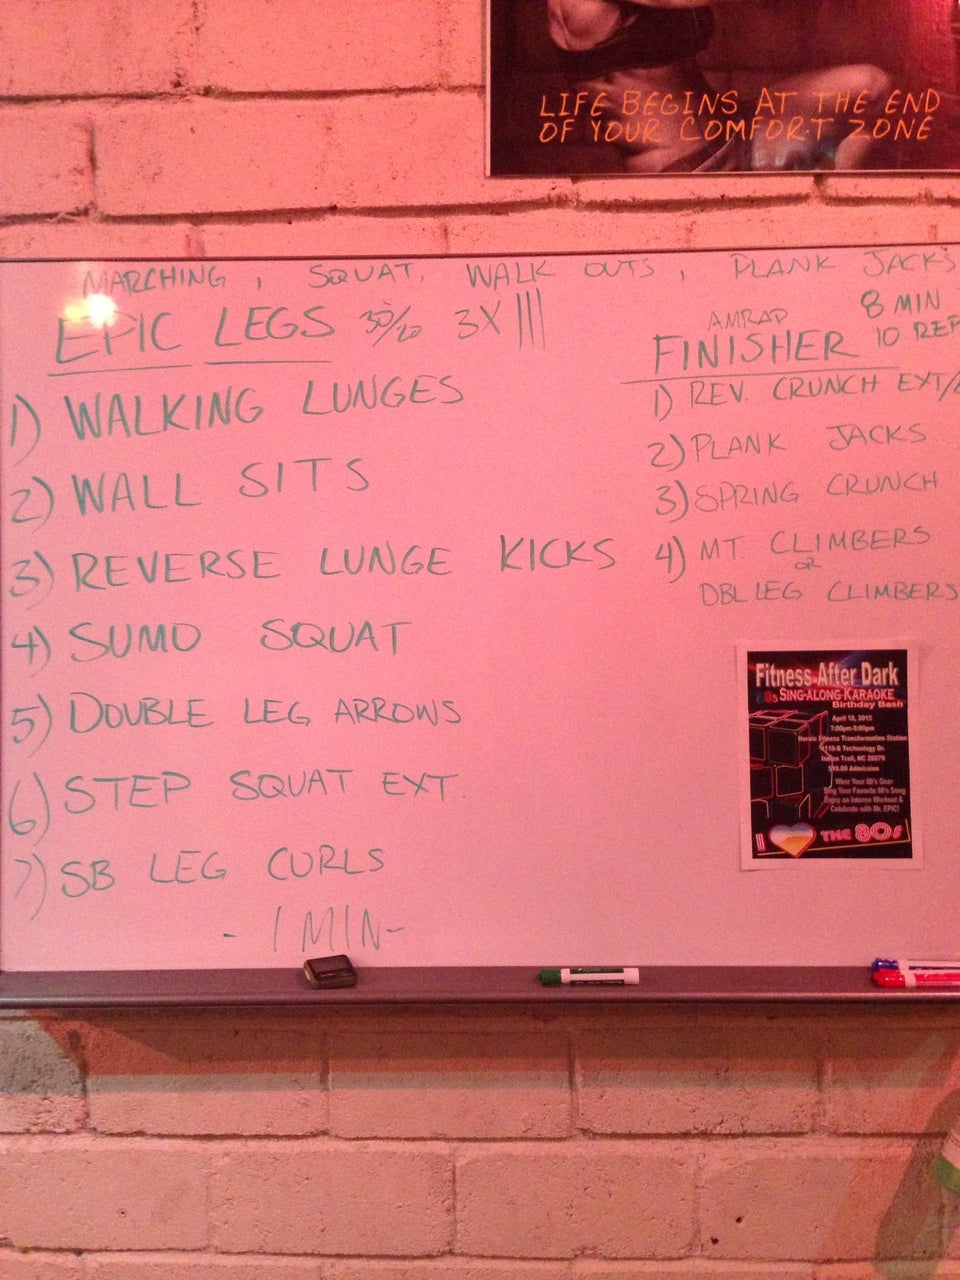 LIFE BEGINS AT THE END
OF YOUR COMFORT ZONE
MARCHING, SQUAT, WALK OUTS, PLANK JACKS
EPIC LEGS 3X |||
1) WALKING LUNGES
2) WALL SITS
3) REVERSE LUNGE KICKS
4) SUMO SQUAT
5) DOUBLE LEG ARROWS
6) STEP SQUAT EXT.
7) SB LEG CURLS
- 1 MIN -
AMRAP 8 MIN
FINISHER 10 REP
1) REV. CRUNCH EXT/
2) PLANK JACKS
3) SPRING CRUNCH
4) MT. CLIMBERS
OR
DBL LEG CLIMBERS
Fitness After Dark
SING-ALONG KARAOKE
Birthday Bash
April 18, 2015
7:00pm-9:00pm
Heroic Fitness Transformation Station
Technology Dr.
Indian Trail, NC 28079
$10.00 Admission
Wear Your 80's Gear
Sing Your Favorite 80's Song
Enjoy an Intense Workout &
Celebrate with Mr. EPIC!
I THE 80s